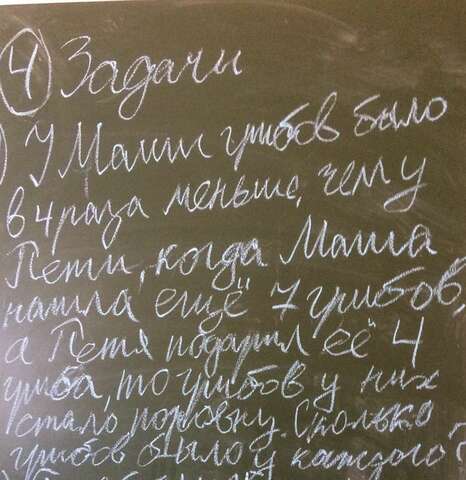 4 Задачи
) У Маши грибов было
в 4 раза меньше, чем у
Пети, когда Маша
нашла ещё 7 грибов,
а Петя подарил её 4
гриба, то грибов у них
стало поровну. Сколько
грибов было у каждого?